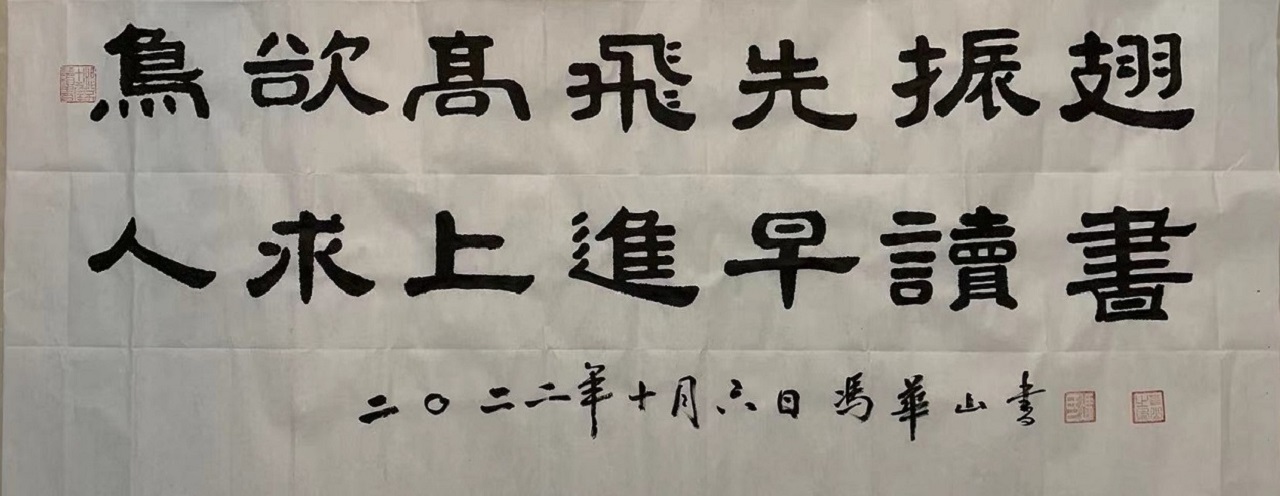 鳥欲髙飛先振翅
人求上進早讀書
二〇二二年十月六日馮華山書